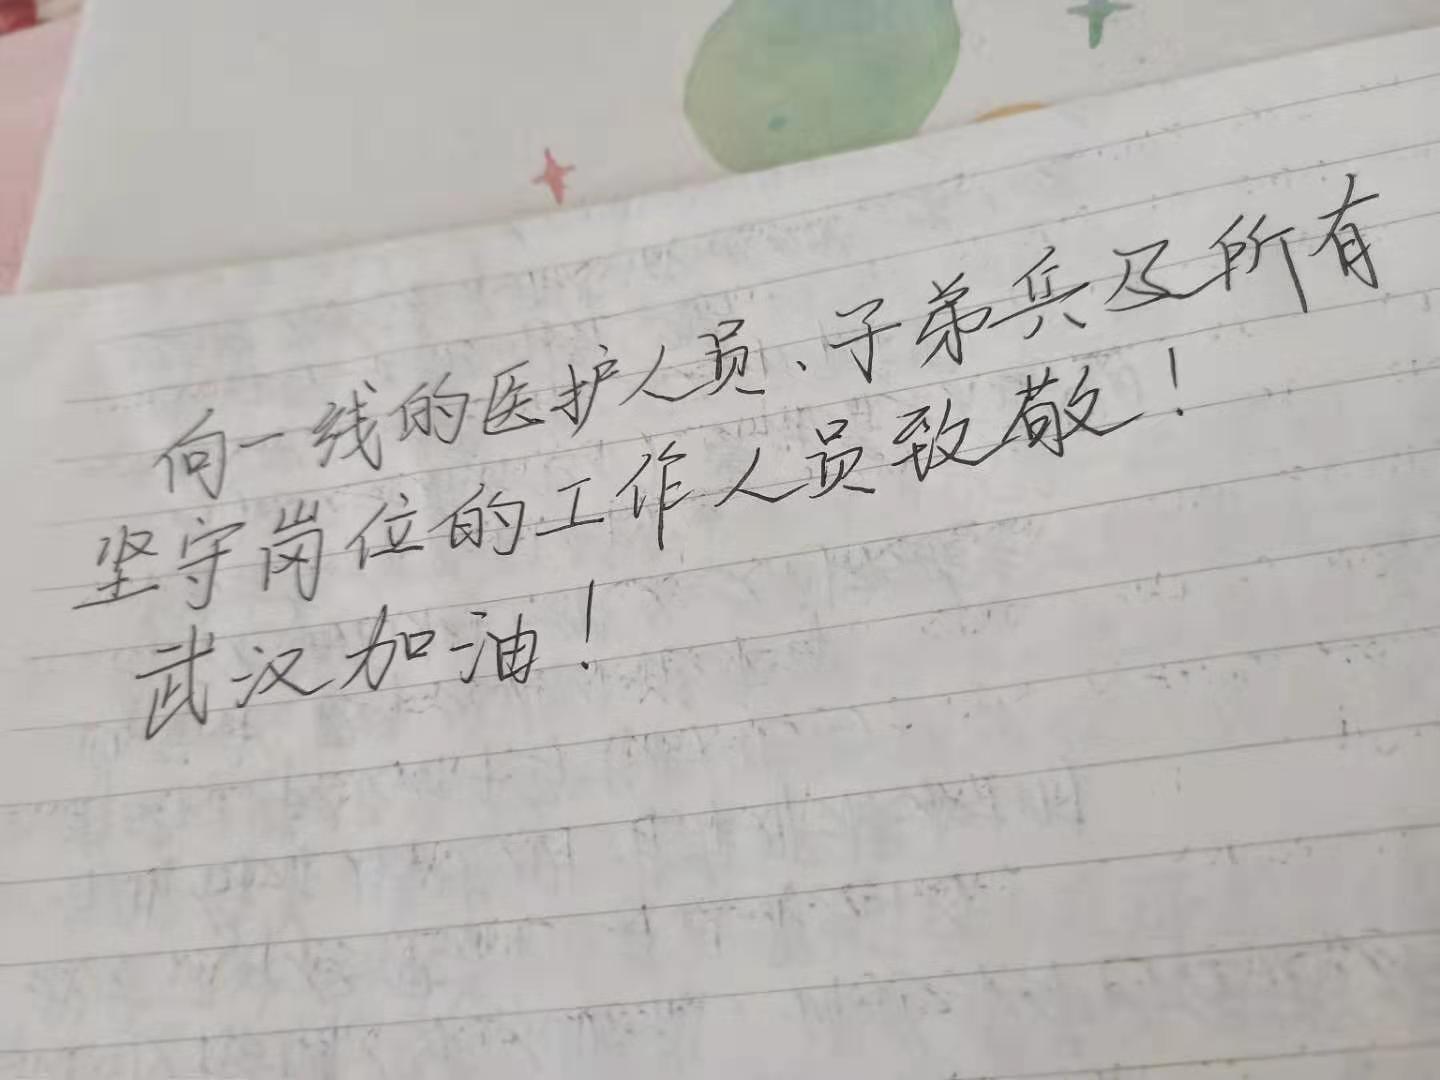 向一线的医护人员、子弟兵及所有
坚守岗位的工作人员致敬！
武汉加油！